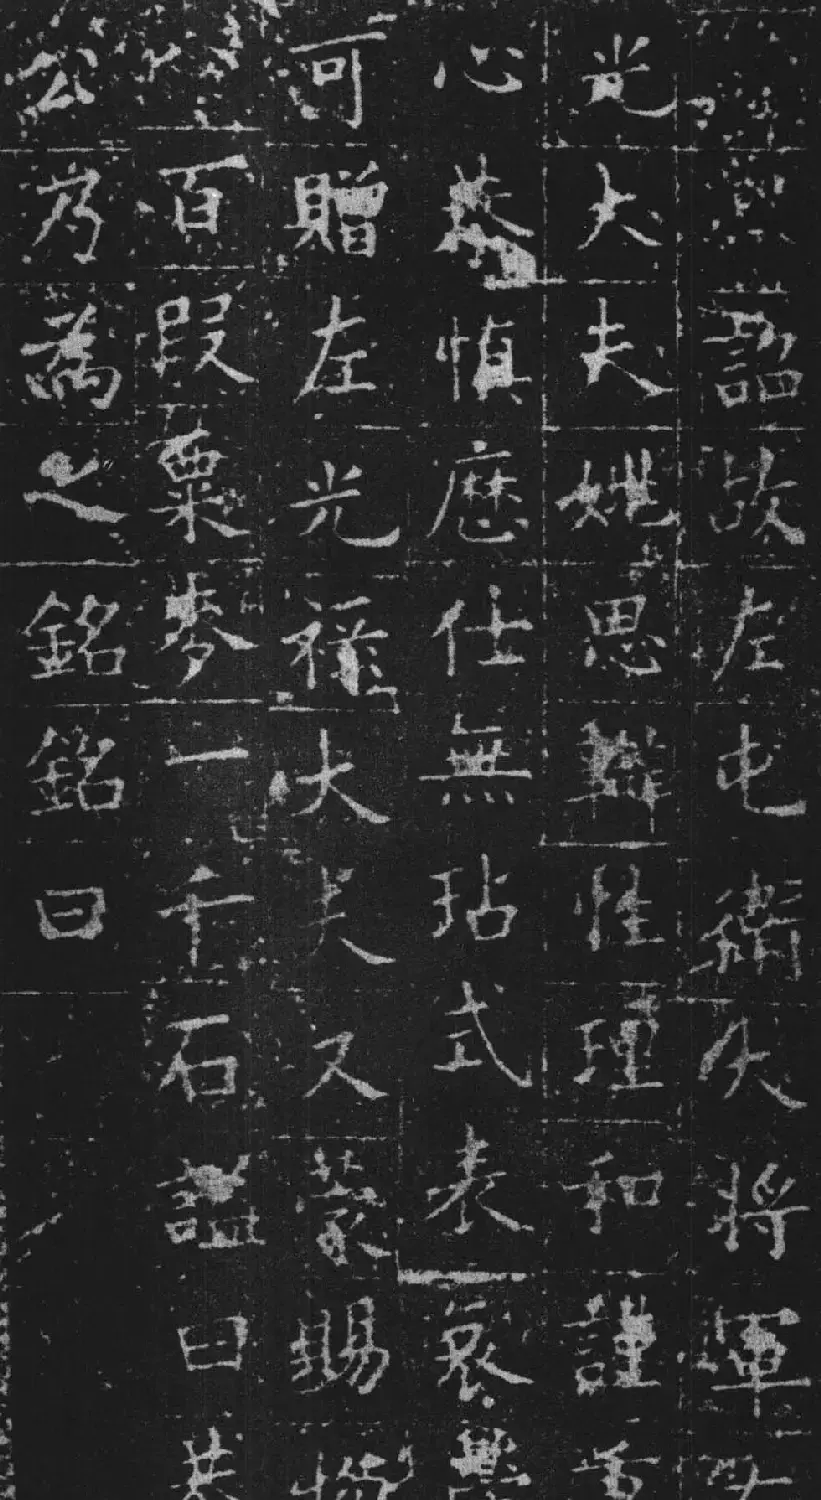 詔故左屯衛大將軍
光大夫姚思辯性理和謹
心恭慎歷仕無玷式表哀
可贈左光祿大夫又蒙賜物
百段粟麥一千石謚曰恭
公為譌之銘銘曰